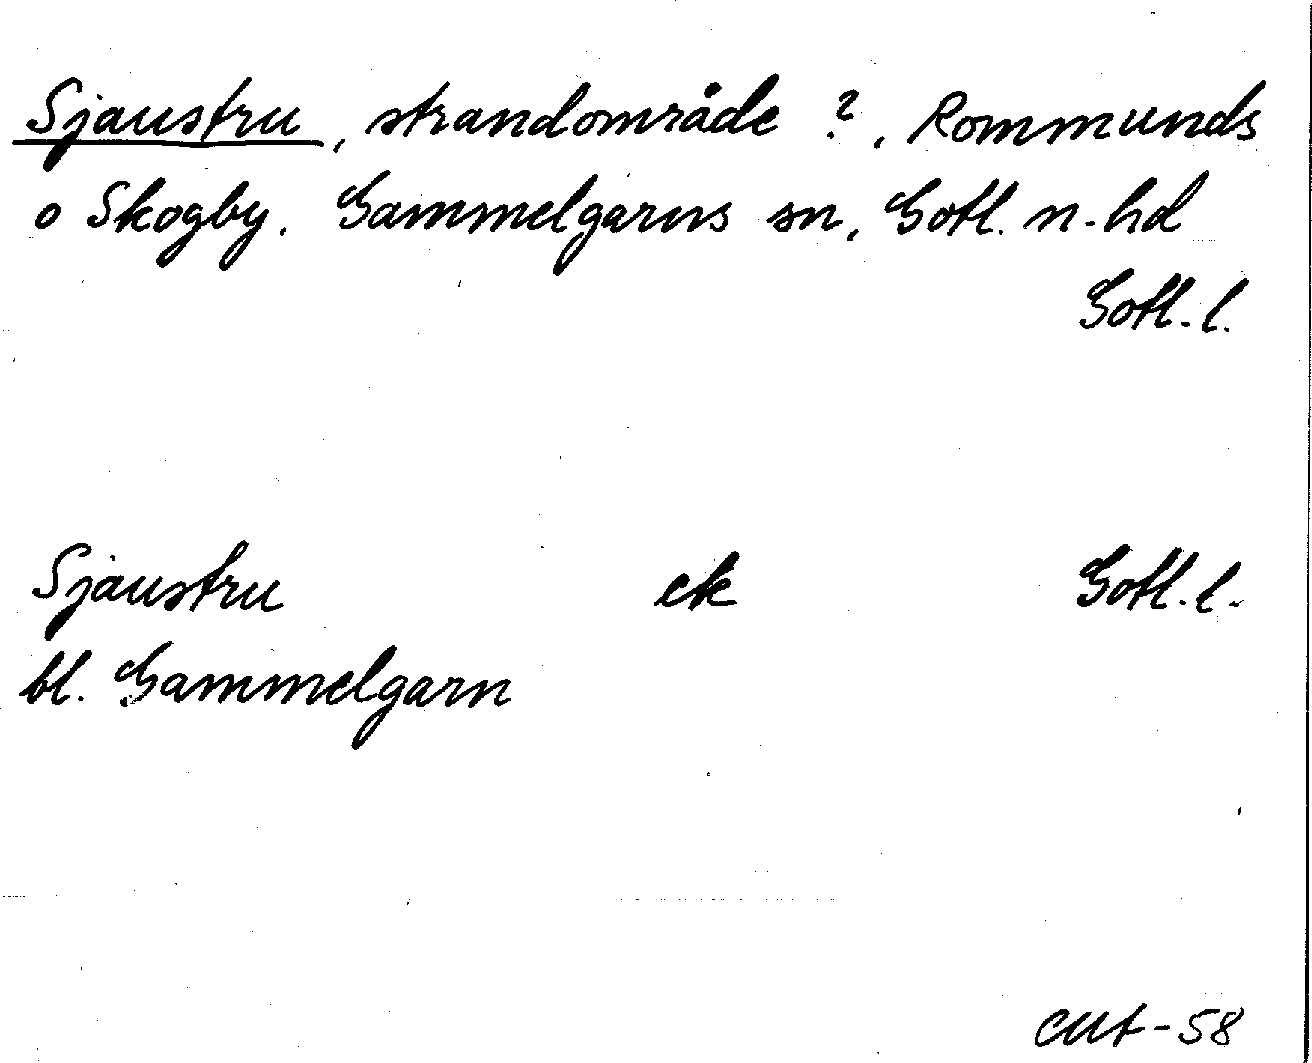 Sjaustru, strandområde ?, Rommunds
o Skogby. Gammelgarns sn, Gotl. n. hd
Gotl. l.
Sjaustru ek Gotl. l.
bl. Gammelgarn
CMt-58